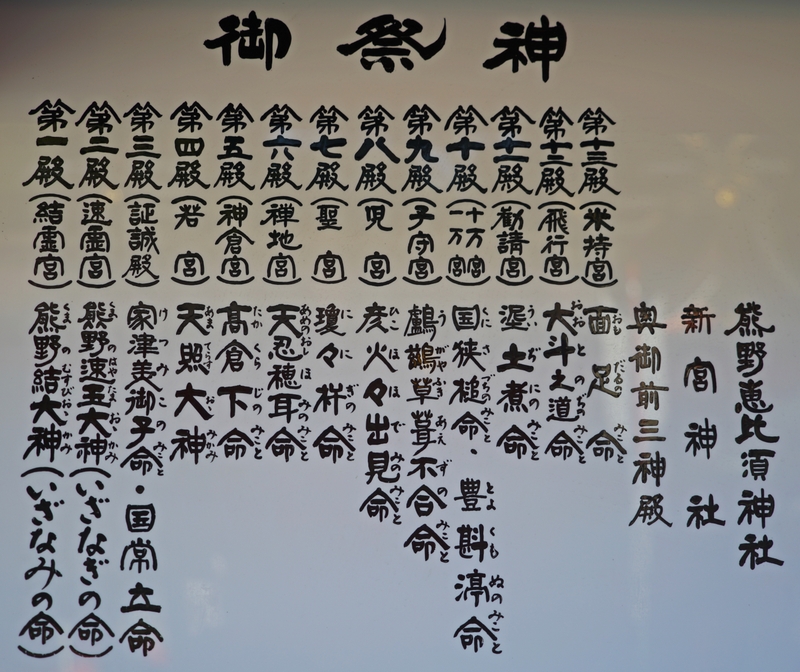 御祭神
第一殿（結霊宮）熊野結大神（いざなみの命）
第二殿（速霊宮）熊野速玉大神（いざなぎの命）
第三殿（証誠殿）家津美御子命・国常立命
第四殿（若宮）天照大神
第五殿（神倉宮）髙倉下命
第六殿（禅地宮）天忍穂耳命
第七殿（聖宮）瓊々杵命
第八殿（児宮）彦火々出見命
第九殿（子守宮）鸕鶿草葺不合命
第十殿（一万宮十万宮）国狭槌命・豊斟渟命
第十一殿（勧請宮）泥土煮命
第十二殿（飛行宮）大斗之道命
第十三殿（米持宮）面足命
奥御前三神殿
新宮神社
熊野恵比須神社